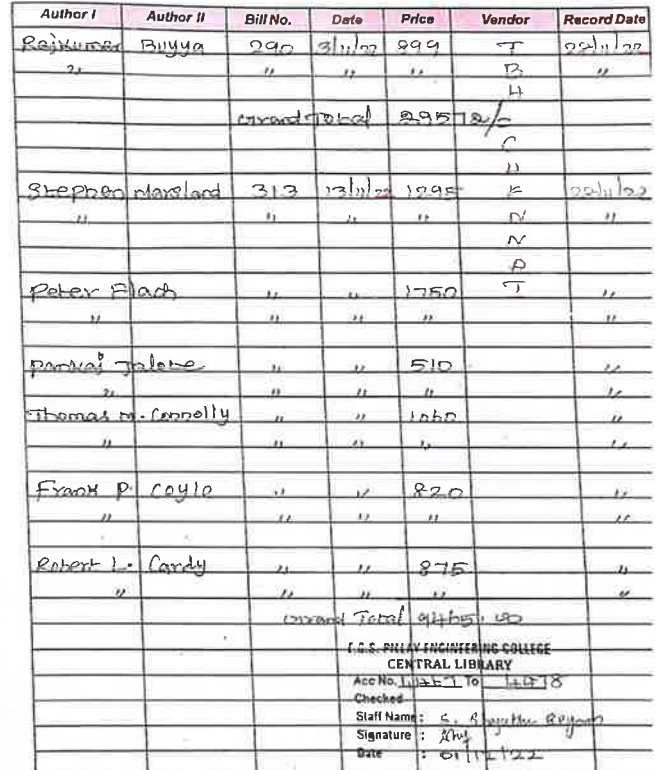 Author I Author II Bill No. Date Price Vendor Record Date
Rajkumar Buyya 290 3/11/22 899 T 22/11/22
" " " " B "
H
Grand Total 29572/-
C
U
Stephen Marsland 313 13/11/22 1295 K 22/11/22
" " " " N "
N
A
Peter Flach " " 1750 T "
" " " " "
Pankaj Jalote " " 510 "
" " " " "
Thomas M. Connolly " " 1060 "
" " " " "
Frank P. Coyle " " 820 "
" " " " "
Robert L. Candy " " 875 "
" " " " "
Grand Total
E.G.S. PILLAY ENGINEERING COLLEGE
CENTRAL LIBRARY
Acc No. To
Checked
Staff Name : S.
Signature :
Date : 01/12/22